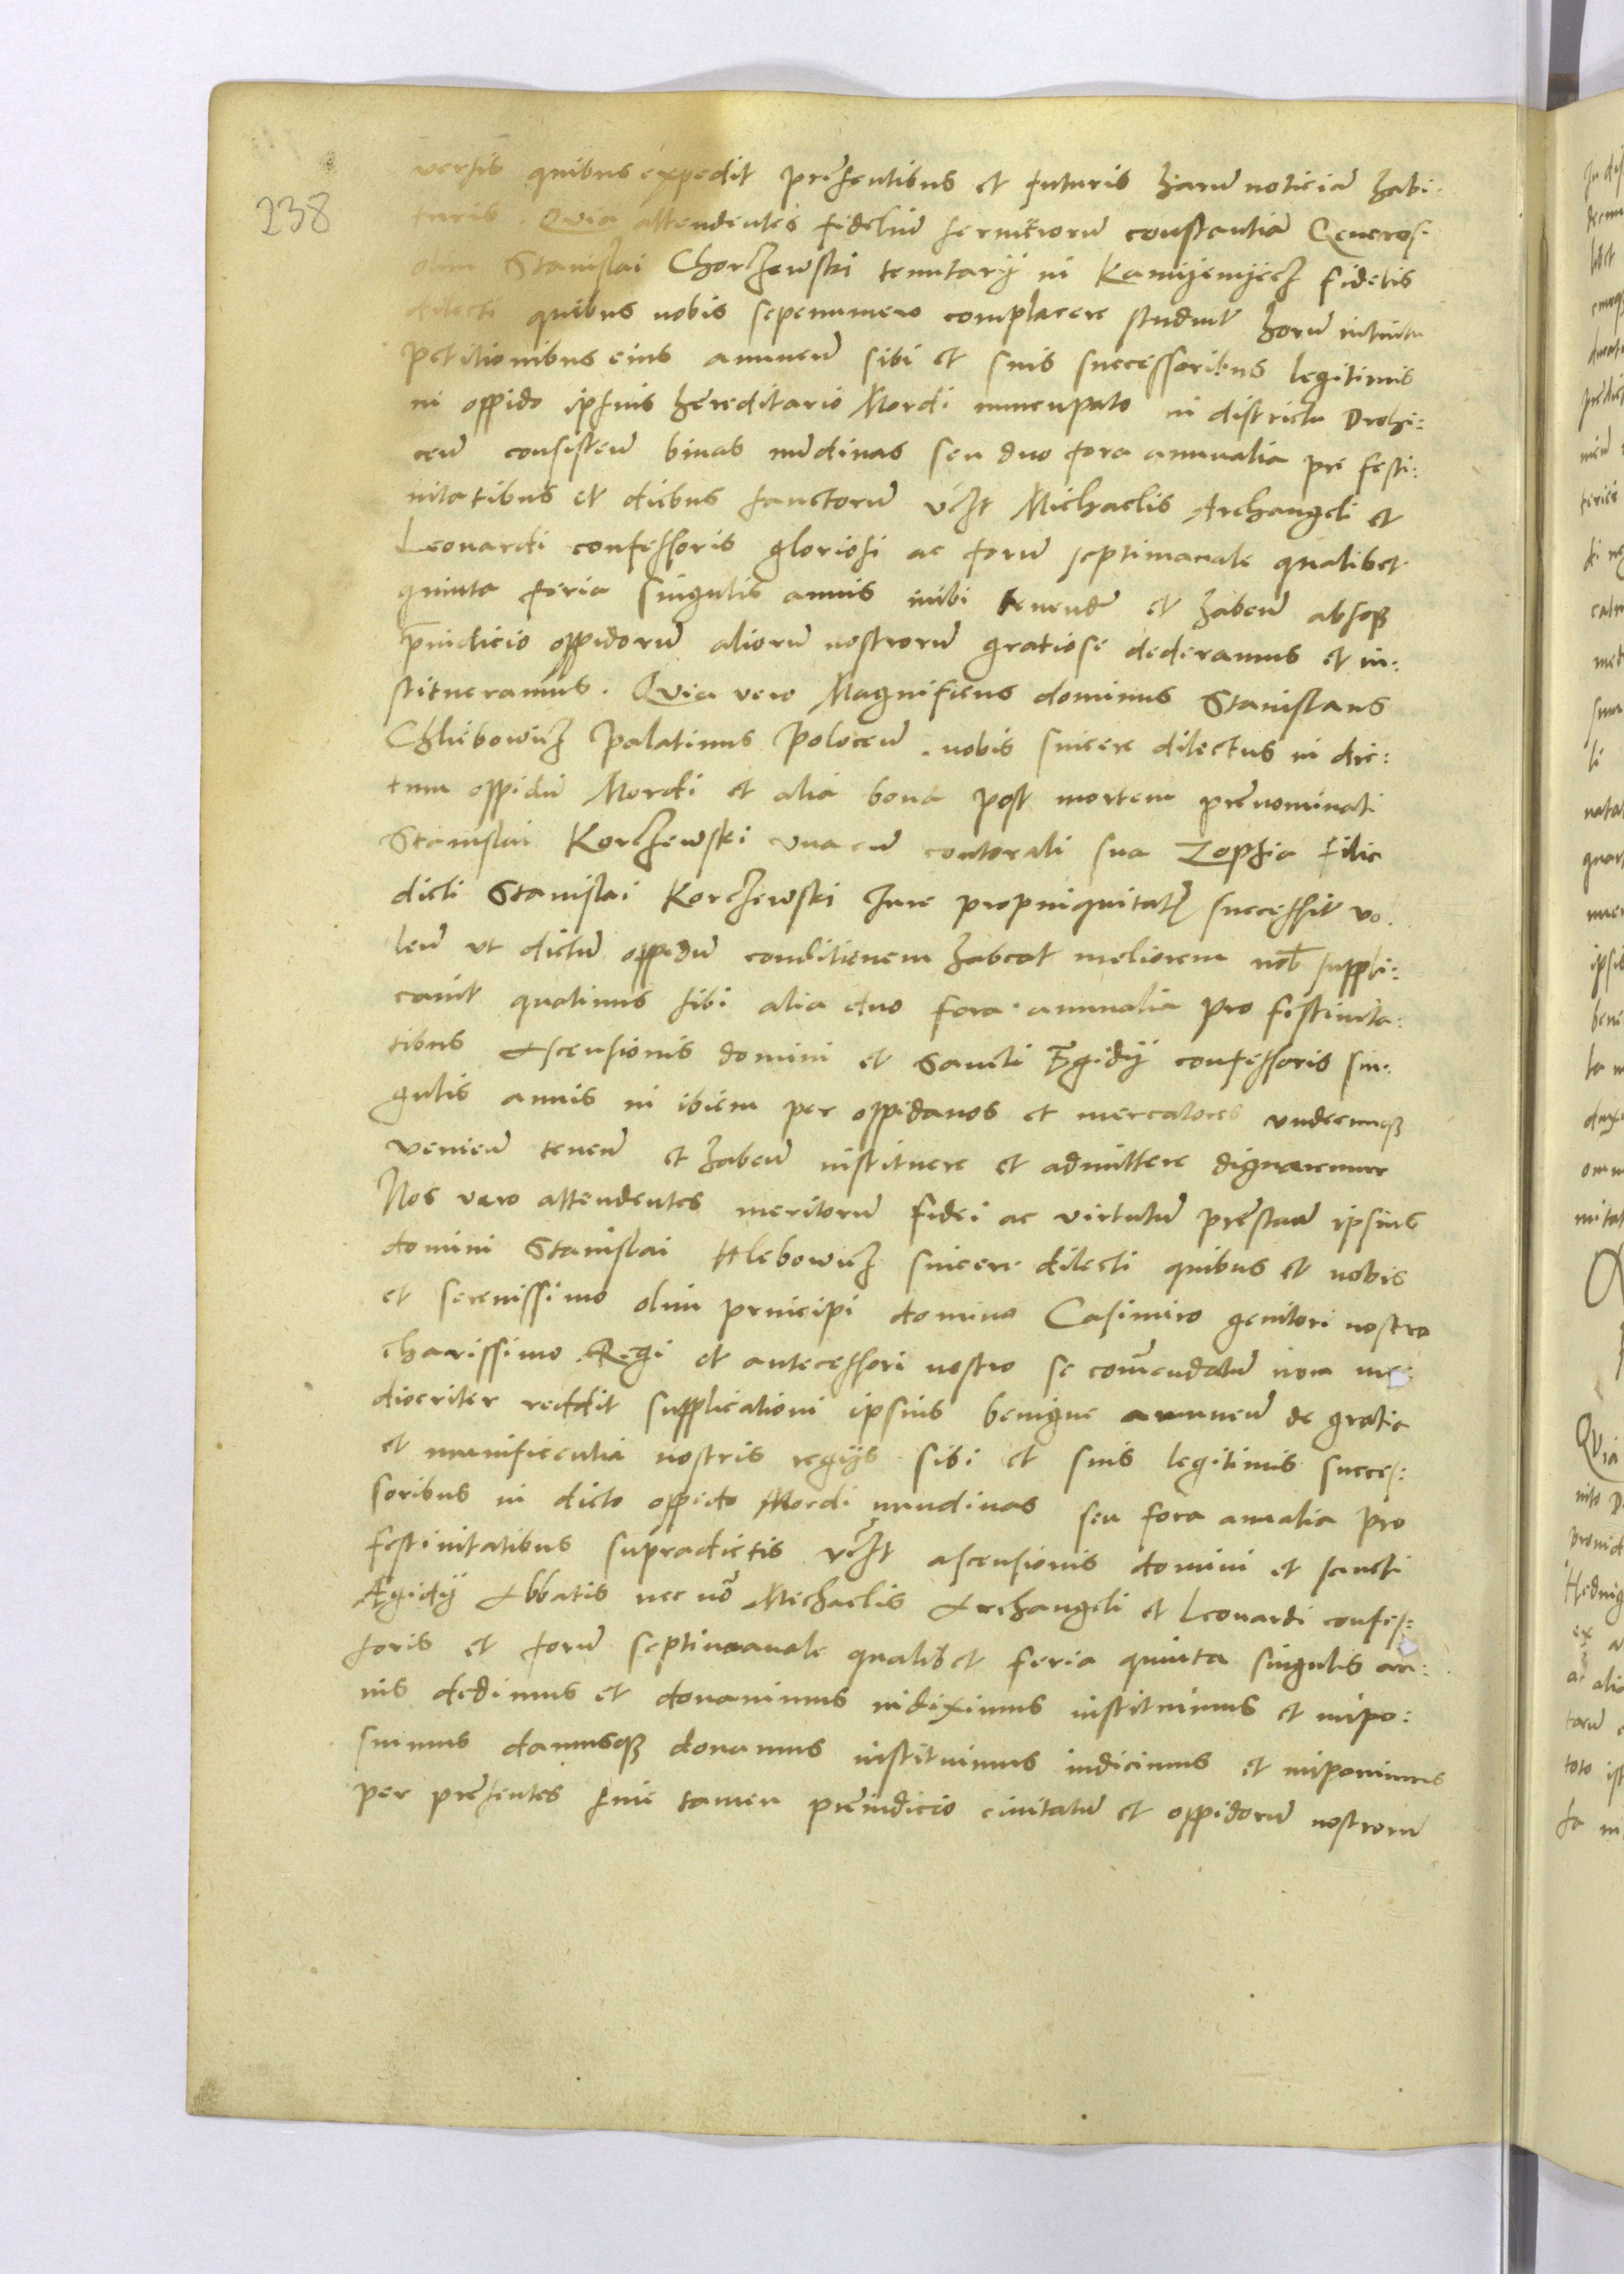 238
versis quibus expedit presentibus et futuris harum noticiā habi:
turis. Quia attendentes fideliū serviciorū constantiā Generosi
olim Stanislai Chorzewski tenutarij in Kamyenyecz fidelis
dilecti quibus nobis sepenumero complacere studuit horū intuitu
petitionibus eius annuen̄ sibi et suis successoribus legitimis
in oppido ipsius hereditario Mordi nuncupato in districtu Drohi:
cen̄ consisten̄ binas nūdinas seu duo fora annualia pre festi:
vitatibus et diebus sanctorū vczt Michaelis Archangeli et
Leonardi confessoris gloriosi ac forū septimanale qualibet
quinta feria singulis annis inibi tenend̄ et haben̄ absqꝫ
p̄iudicio oppidorū aliorū nostrorū gratiose dederamus et in:
stitueramus. Quia vero Magnificus dominus Stanislaus
Chliebowicz Palatinus Polocen̄. nobis sincere dilectus in dic:
tum oppidū Mordi et alia bona post mortem prenominati
Stanislai Korczewski una cū contorali sua Zophia filia
dicti Stanislai Korczewski Jure propinquitatꝭ successit vo:
len̄ ut dictū oppidū conditionem habeat meliorem nob̄ suppli:
cavit quatinus sibi alia duo fora annualia pro festivita:
tibus Ascensionis domini et Sancti Egidij confessoris sin:
gulis annis in ibiem per oppidanos et mercatores undecunqꝫ
venien̄ tenen̄ et haben̄ instituere et admittere dignaremur
Nos vero attendentes meritorū fidei ac virtutū prestan̄ ipsius
domini Stanislai Hlebowicz sincere dilecti quibus et nobis
et serenissimo olim principi domino Casimiro genitori nostro
charissimo Regi et antecessori nostro se com̄endatū non me:
diocriter reddit supplicationi ipsius benigne annuen̄ de gratia
et munificentia nostris regijs sibi et suis legitimis succes:
soribus in dicto oppido Mordi nundinas seu fora annalia pro
festivitatibus supradictis vczt ascensionis domini et sancti
Ægidij Abbatis nec nō Michaelis Archangeli et Leonardi confes:
soris et forū septimanale qualibet feria quinta singulis an:
nis dedimus et donavimus indiximus instituimus et impo:
suimus damusqꝫ donamus instituimus indicimus et imponimus
per presentes sine tamen preiudicio civitatū et oppidorū nostrorū